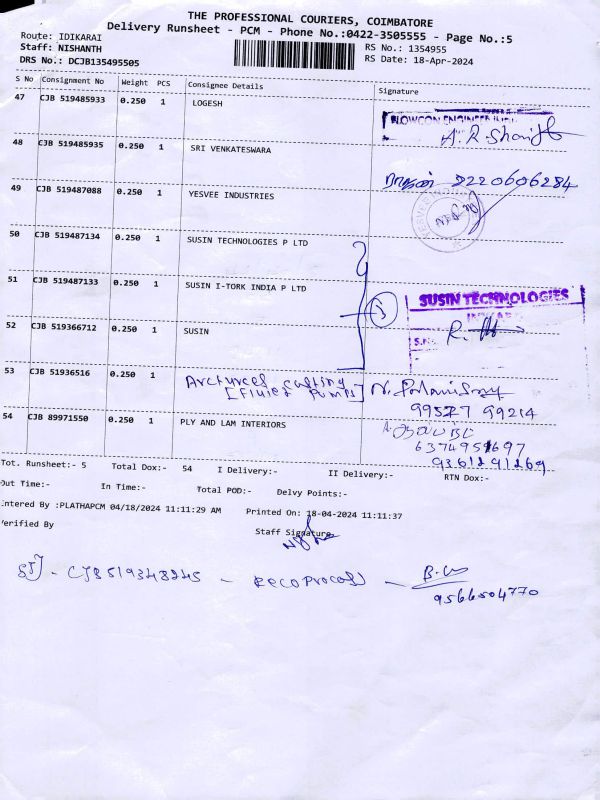 THE PROFESSIONAL COURIERS, COIMBATORE
Delivery Runsheet - PCM - Phone No.:0422-3505555 - Page No.:5
Route: IDIKARAI
RS No.: 1354955
Staff: NISHANTH
RS Date: 18-Apr-2024
DRS No.: DCJB135495505
S No Consignment No Weight PCS Consignee Details Signature
47 CJB 519485933 0.250 1 LOGESH
48 CJB 519485935 0.250 1 SRI VENKATESWARA
49 CJB 519487088 0.250 1 YESVEE INDUSTRIES
50 CJB 519487134 0.250 1 SUSIN TECHNOLOGIES P LTD
51 CJB 519487133 0.250 1 SUSIN I-TORK INDIA P LTD
SUSIN TECHNOLOGIES
52 CJB 519366712 0.250 1 SUSIN
53 CJB 51936516 0.250 1
99527 99214
54 CJB 89971550 0.250 1 PLY AND LAM INTERIORS
9361291269
Tot. Runsheet:- 5 Total Dox:- 54 I Delivery:- II Delivery:- RTN Dox:-
Out Time:- In Time:- Total POD:- Delvy Points:-
Entered By :PLATHAPCM 04/18/2024 11:11:29 AM Printed On: 18-04-2024 11:11:37
Verified By Staff Signature
CJB519348245 -
9566504770